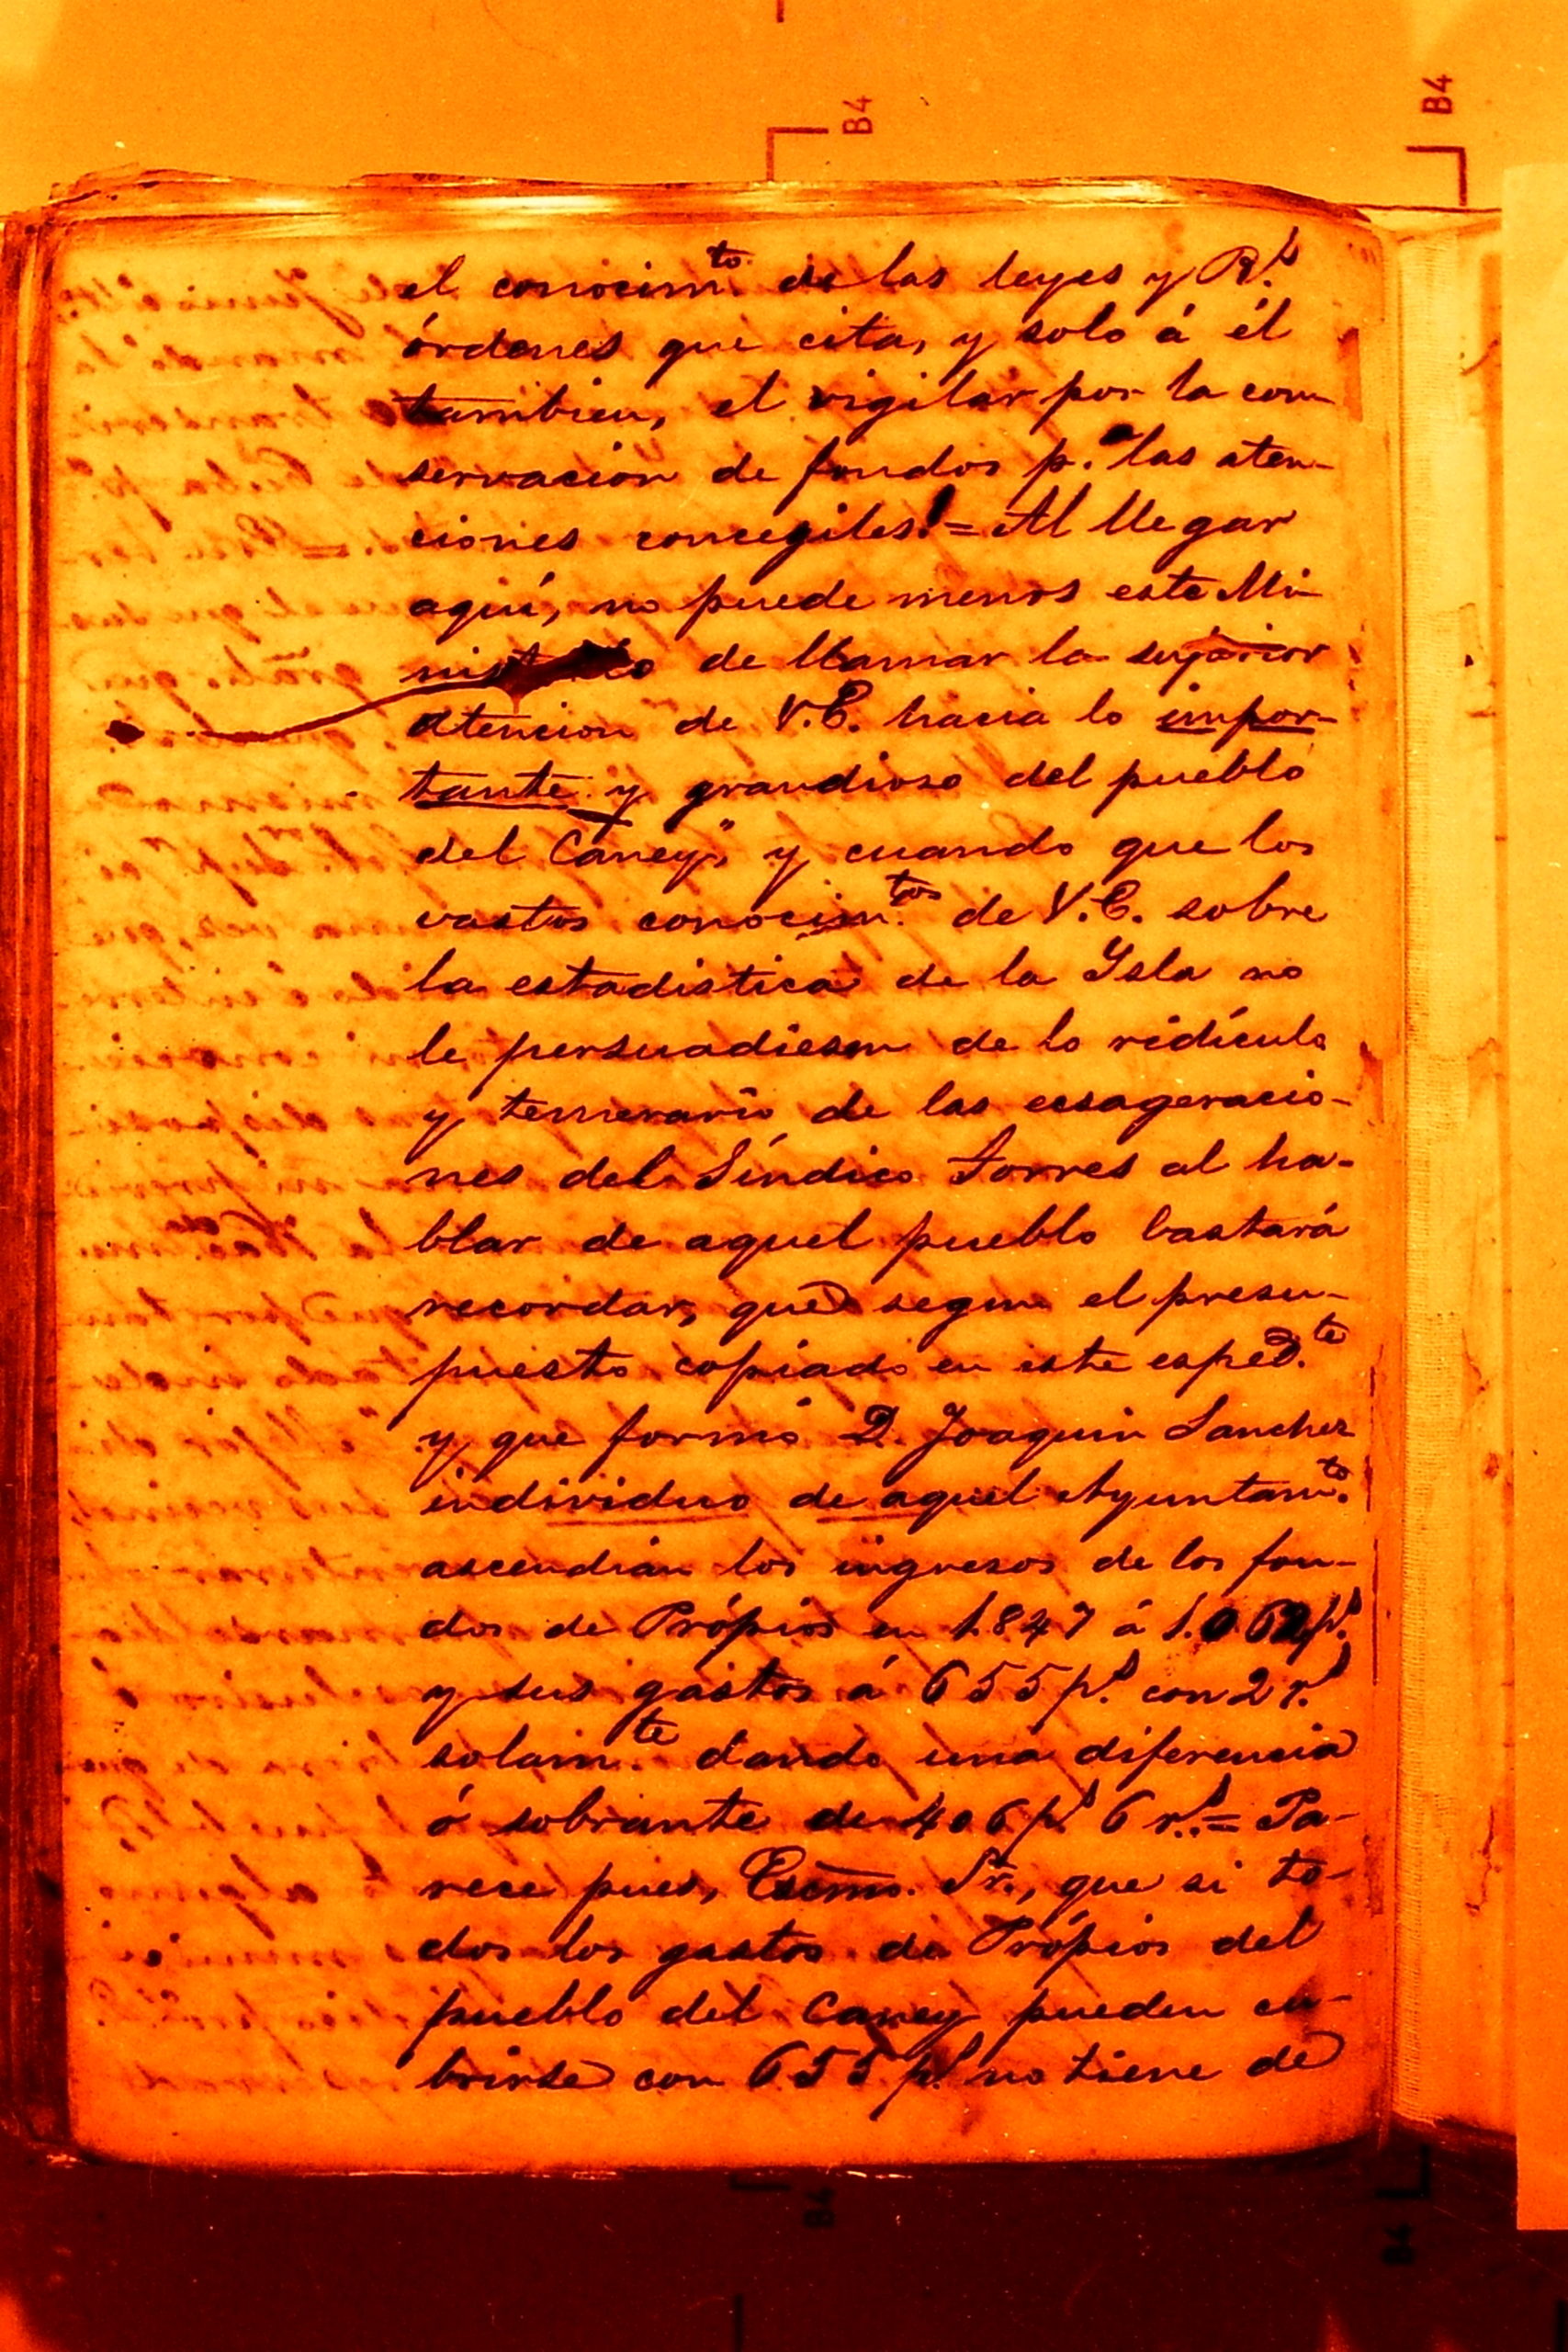 B4
B4
el conocim.to de las leyes y R.s
órdenes que cita, y solo á él
tambien, el vigilar por la con-
servacion de fondos p.a las aten-
ciones concegiles! = Al llegar
aquí, no puede menos este Mi-
nisterio de llamar la superior
atencion de V.E. hacia lo impor-
tante y grandioso del pueblo
del Caney", y cuando que los
vastos conocim.tos de V.E. sobre
la estadistica de la Ysla no
le persuadiesen de lo ridículo
y temerario de las ecsageracio-
nes del Síndico Torres al ha-
blar de aquel pueblo bastará
recordar, que segun el presu-
puesto copiado en este esped.te
y que formó D. Joaquin Sanchez
individuo de aquel Ayuntam.to
ascendian los ingresos de los fon-
dos de Própios en 1.847 á 1.062 p.s
y sus gastos á 655 p.s con 2 r.s
solam.te dando una diferencia
ó sobrante de 406 p.s 6 r.s = Pa-
rece pues, Escmo. Sr., que si to-
dos los gastos de Própios del
pueblo del Caney pueden cu-
brirse con 655 p.s no tiene de
B4
B4